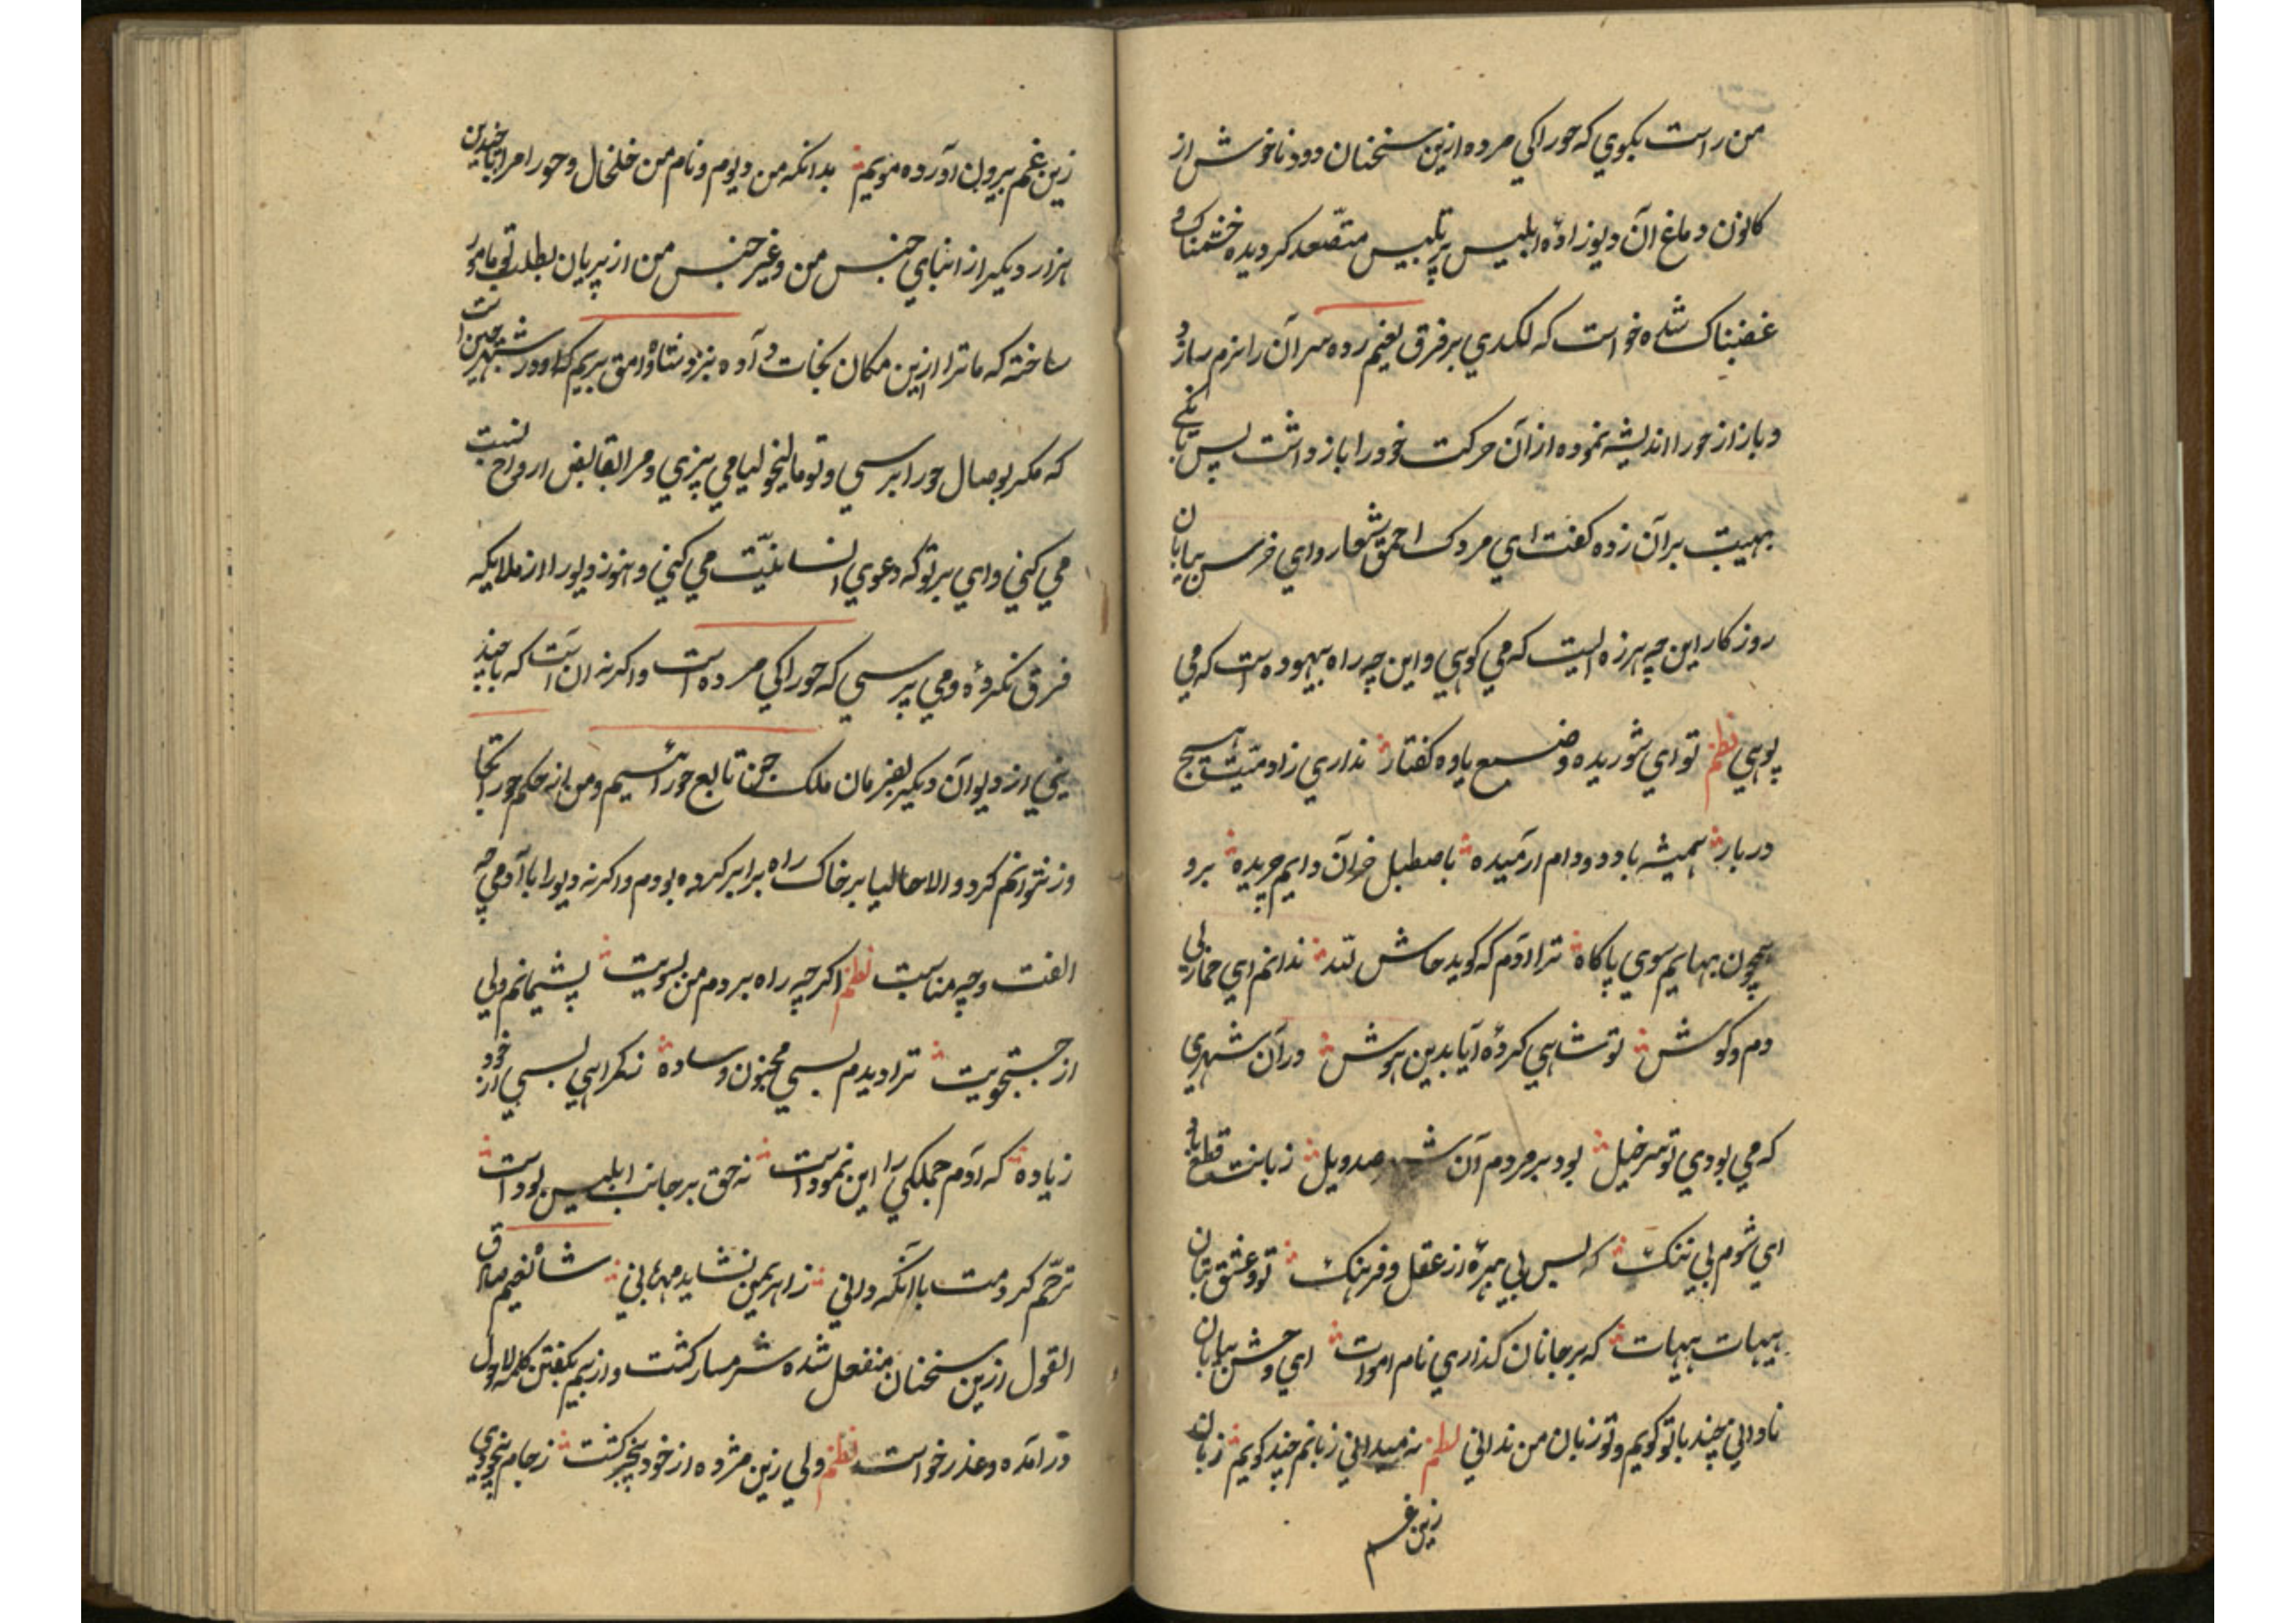 من راست بکوي که حورا کي مرده ازين سخنان دود ناخوش از
کانون دماغ آن ديوزادهٔ ابليس پرتلبيس متصّعد کرديده خشمناک و
غضبناک شده خواست که لکدي بر فرق نعيم زده سر آن را نرم سازد
و باز از حورا انديشه نموده از آن حرکت خود را باز داشت پس بانکي
بهيبت بر آن زده کفت اي مردک احمق شعار و اي خرس بيابان
روزکار اين چه هرزه ايست که مي کوهي و اين چه راه بيهوده است که مي
پوهي نظم تو اي شوريده وضع ياوه کفتار نداري زادميت هيچ
دربار هميشه با دد و دام آرميده باصطبل خران دايم چريده برو
همچون بهايم سوي پاکاه ترا آدم که کويد حاش لله ندانم اي حمار بي
دم و کوش تو شاهي کردهٔ آيا بدين هوش در آن شهري
که مي بودي تو سرخيل بود بر مردم آن شهر صد ويل زبانت قطع باد
اي شوم بي ننک که بس بي بهرهٔ از عقل و فرهنک تو و عشق بتان
هيهات هيهات که بر جانان کذاري نام اموات اي وحش بيابان
ناداني چند با تو کويم و تو زبان من نداني نظم نه ميداني زبانم چند کويم زبان
زين غم
زين غم بيرون آورده مويم بدانکه من ديوم و نام من خلخال و حورا مرا با چندين
هزار ديکر از ابناي جنس من و غير جنس من از پريان بطلب تو مامور
ساخته که ما ترا ازين مکان نجات داده نزد شاه وامق بريم که او در شهر چين است
که مکر بوصال حورا برسي و تو ماليخوليا مي پزي و مرا بقابض ارواح نسبت
مي کني واي بر تو که دعوي انسانيّت مي کني و هنوز ديو را از ملايکه
فرق نکردهٔ و مي پرسي که حورا کي مرده است و اکر نه آنست که با چند
يني از ديوان ديکر بفرمان ملک جن تابع حورا هستيم و من از حکم حورا تجا
وز نتوانم کرد و الا حاليا بر خاک راه برابر کرده بودم و اکر نه ديو را با آدمي چه
الفت و چه مناسبت نظم اکرچه راه بردم من بسويت پشيمانم ولي
از جستجويت ترا ديدم بسي مجنون و ساده ز کمراهي بسي از خود
زياده که آدم جملکي را اين نمود است نه حق بر جانب ابليس بود است
ترحّم کردمت با آنکه داني ز اهريمن نشايد مهرباني شاه نعيم صادق
القول ازين سخنان منفعل شده شرمسار کشت و از بيم بکفتن کلمه لاحول
در آمده و عذر خواست نظم ولي زين مژده از خود بيخبر کشت ز جام بيخودي